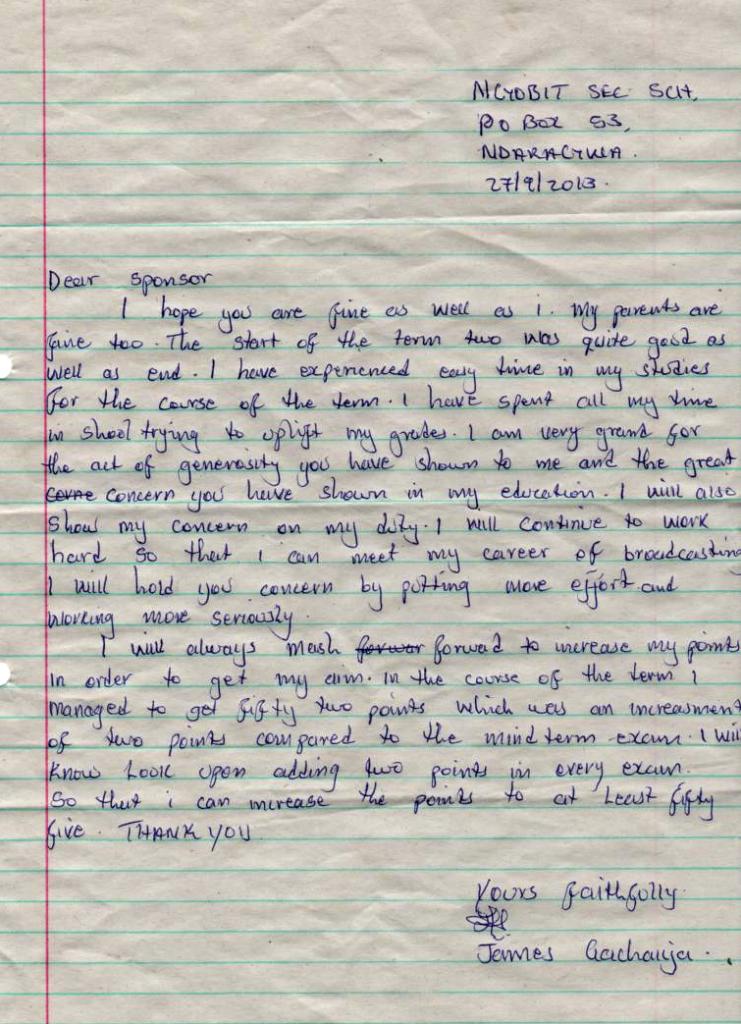 NGYOBIT SEC SCH,
PO BOX 53,
NDARAGWA.
27/9/2013.
Dear sponsor
I hope you are fine as well as i. My parents are
fine too. The start of the term two was quite good as
well as end. I have experienced easy time in my studies
for the course of the term. I have spent all my time
in shool trying to uplift my grades. I am very grand for
the act of generosity you have shown to me and the great
concern you have shown in my education. I will also
show my concern on my duty. I will continue to work
hard so that i can meet my career of broadcasting
I will hold you concern by putting more effort and
working more seriously.
I will always mash forwad to increase my points
in order to get my aim. In the course of the term I
managed to get fifty two points which was an increasment
of two points compared to the mind term exam. I will
know look upon adding two points in every exam.
So that i can increase the points to at least fifty
five. THANK YOU
Yours faithfully
James Gachanja.